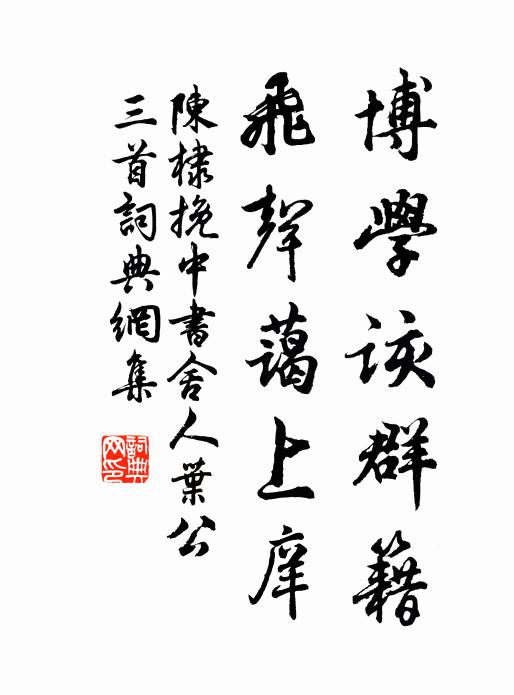 博學該群籍
飛聲藹上庠
陳棣挽中書舍人葉公
三首詞典網集
詞典
网印